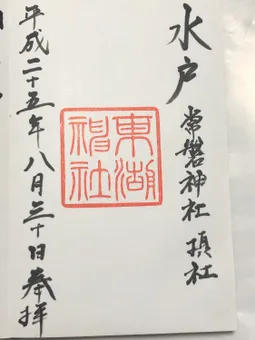 水戸
常磐神社
東湖
神社
平成二十五年八月三十日奉拝